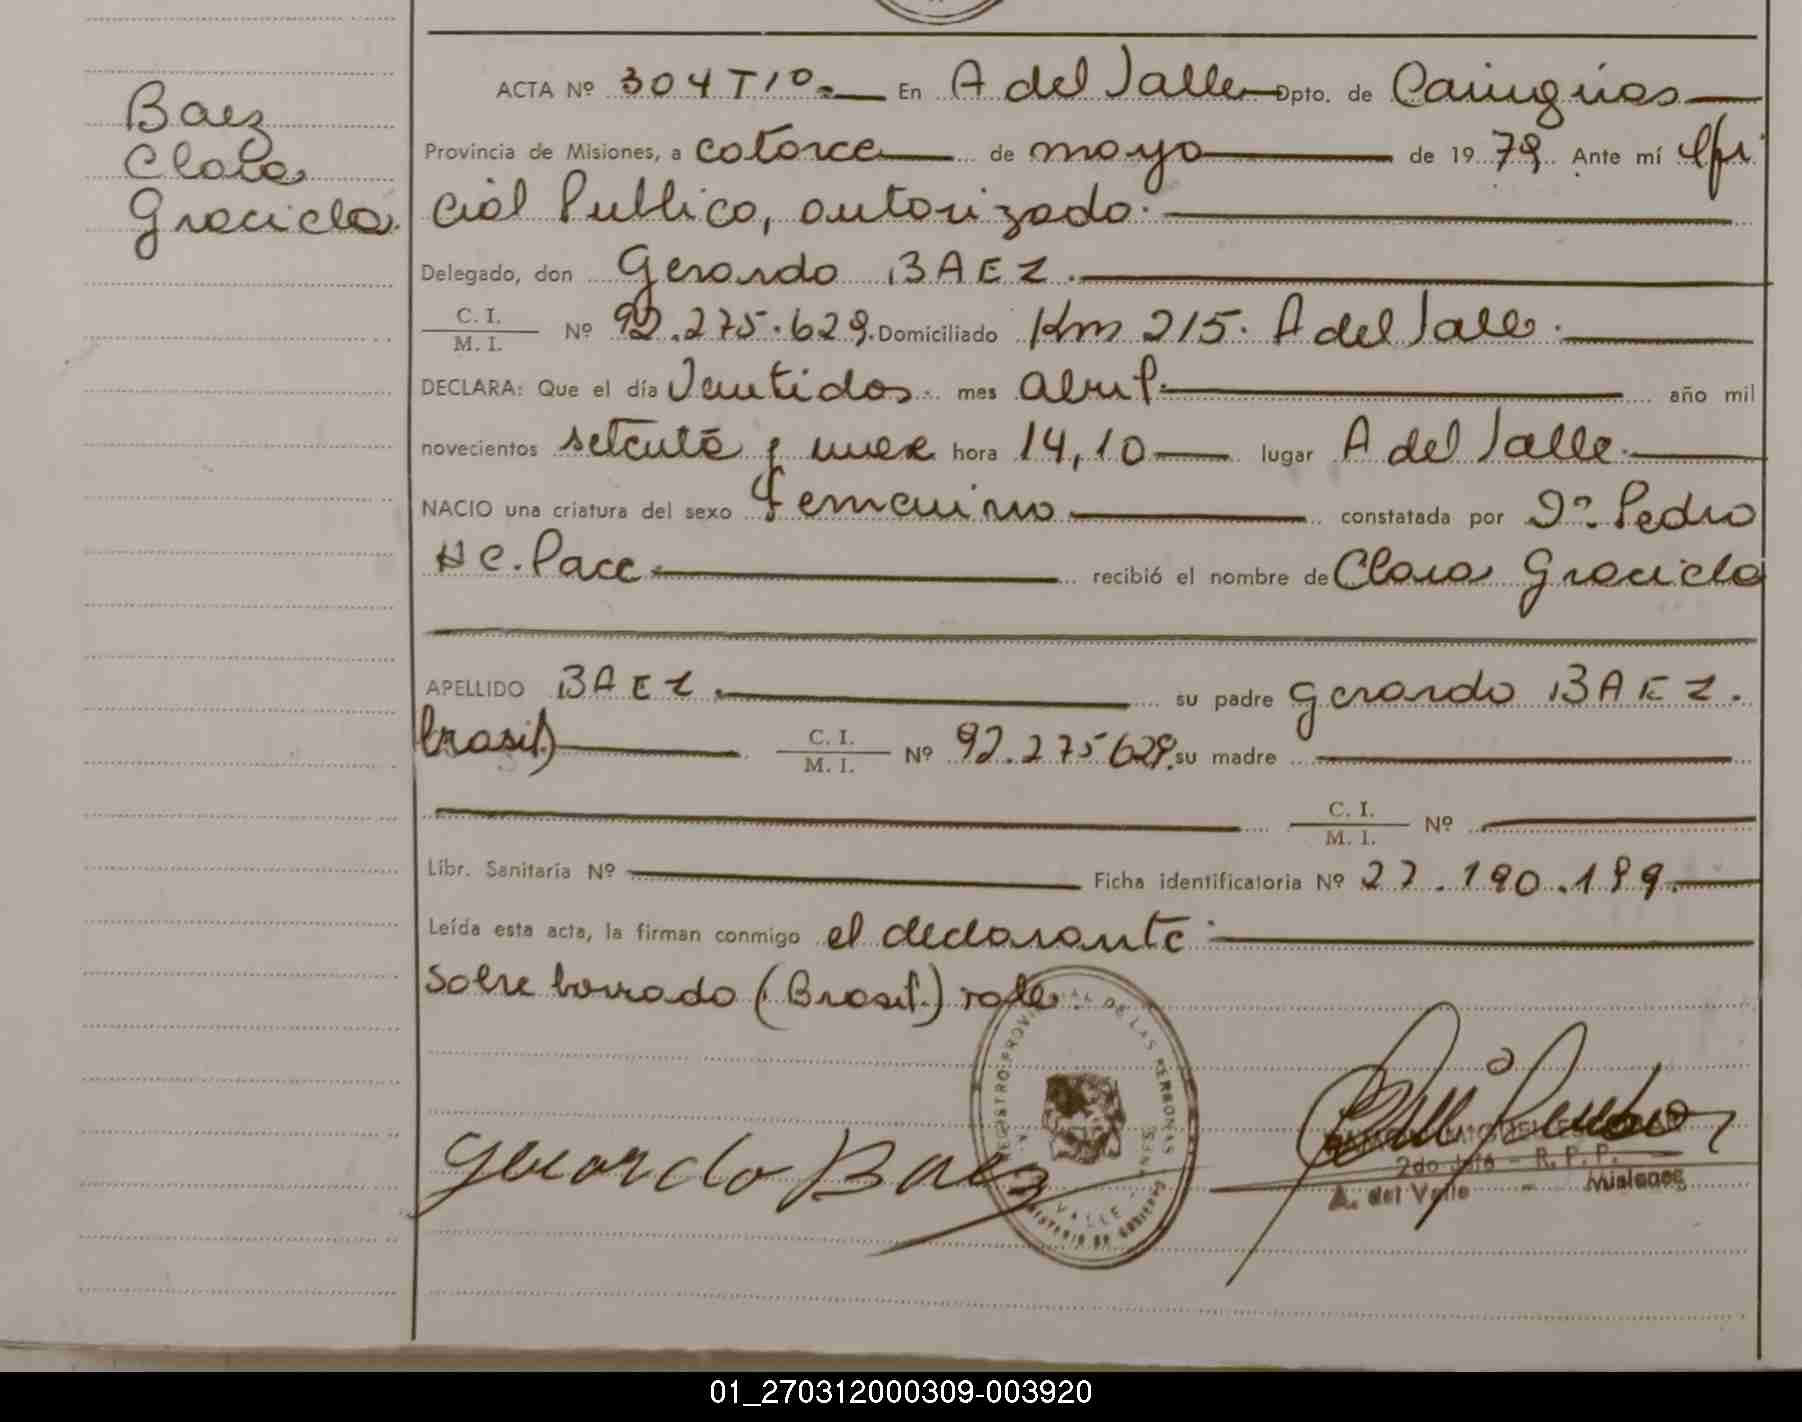 Baez
Clara
Graciela
ACTA Nº 304 Tº 1º En A del Valle Dpto. de Cainguas
Provincia de Misiones, a catorce de mayo de 19 79 Ante mí Ofi
cial Publico, autorizado.
Delegado, don Gerardo BAEZ.
C. I.
M. I. Nº 92.275.629. Domiciliado Km 215. A del Valle.
DECLARA: Que el día Veintidos mes abril año mil
novecientos setenta y nueve hora 14,10 lugar A del Valle
NACIO una criatura del sexo femenino constatada por Dr. Pedro
H C. Pace recibió el nombre de Clara Graciela
APELLIDO BAEZ su padre Gerardo BAEZ.
brasil) C. I.
M. I. Nº 92.275629. su madre
C. I.
M. I. Nº
Libr. Sanitaria Nº Ficha identificatoria Nº 27.190.199.
Leída esta acta, la firman conmigo el declarante
Sobre borrado (Brasil.) vale
REGISTRO PROVINCIAL DE LAS PERSONAS
Gerardo Baez
2do Jefe - R. P. P.
A. del Valle - Misiones
01_270312000309-003920